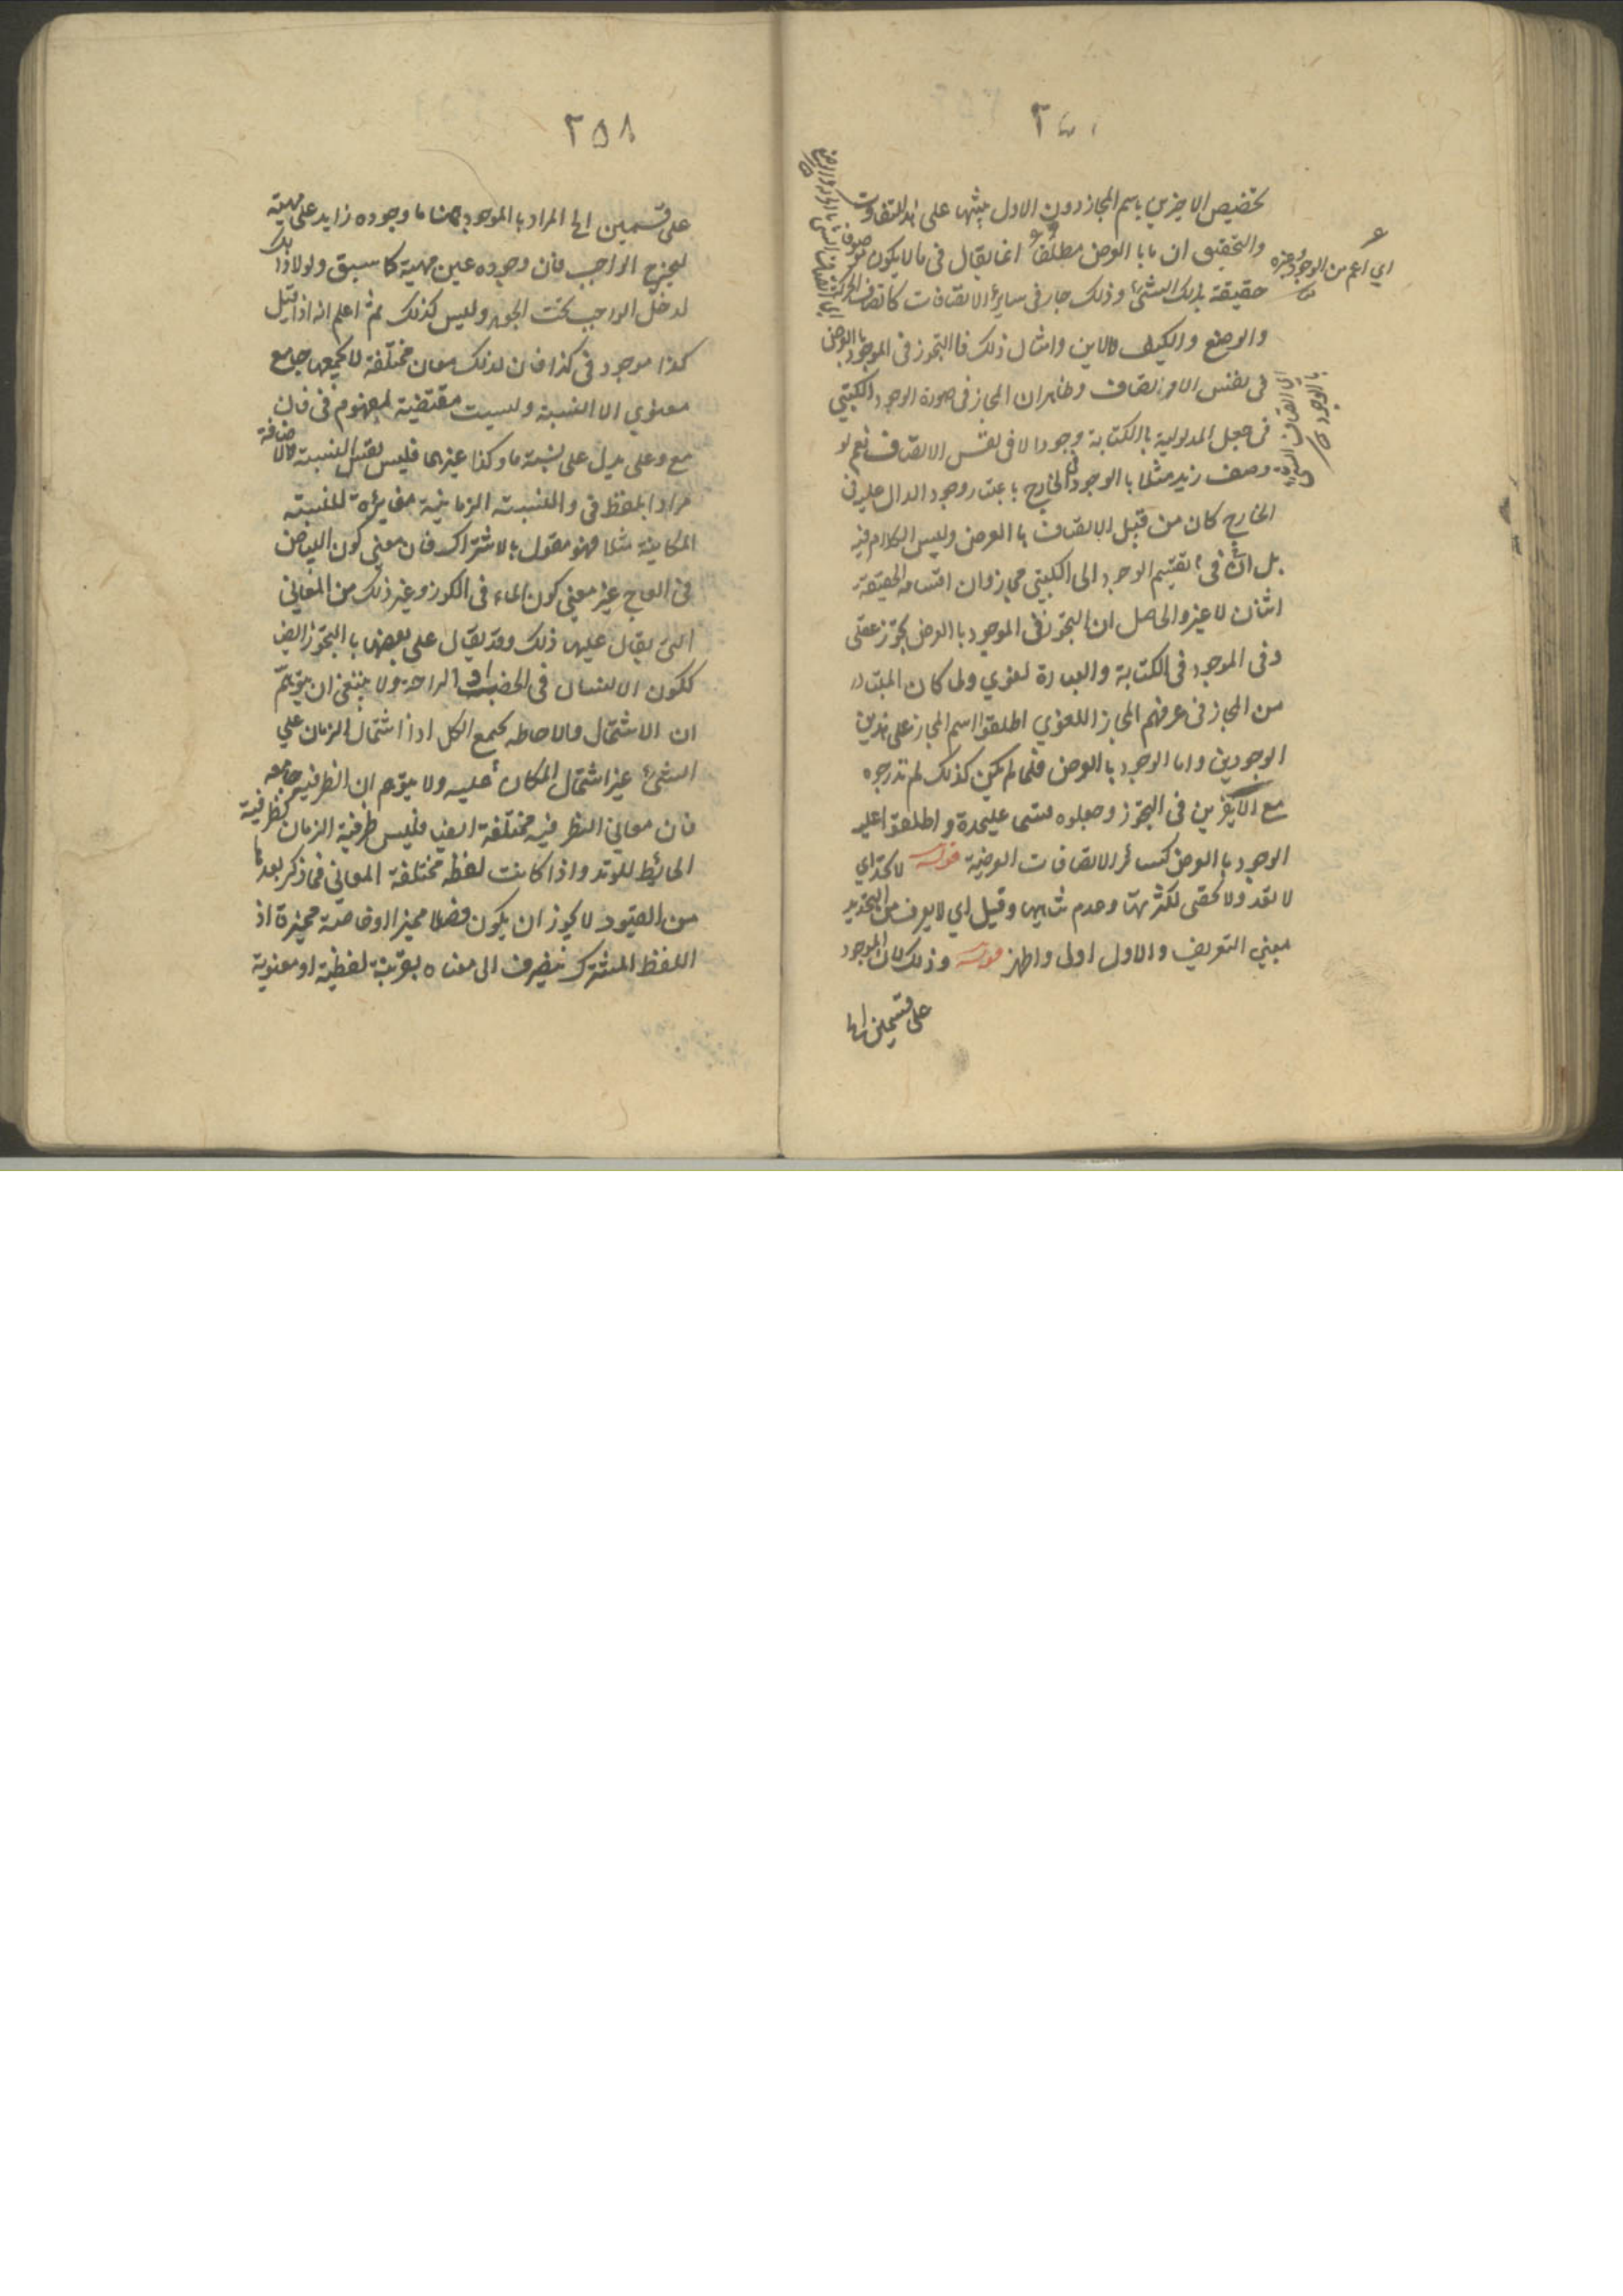 تخصيص الاخيرين باسم المجاز دون الاول ينبها على هذا التفاوت
والتحقيق ان ما بالعرض مطلقا انما يقال في ما لا يكون موصوفا
حقيقة بذلك الشئ وذلك جار في ساير الاتصافات كاتصاف بالحركة
والوضع والكيف والاين وامثال ذلك فالتجوز في الموجود بالعرض
في نفس الاتصاف وظاهر ان المجاز في صورة الوجود الكتبي
في جعل المدلولية بالكتابة وجودا لا في نفس الاتصاف نعم لو
وصف زيد مثلا بالوجود في الخارج باعتبار وجود الدال عليه في
الخارج كان من قبيل الاتصاف بالعرض وليس الكلام فيه
بل في تقسيم الوجود الى الكتبي مجاز وان اقسامه الحقيقة
اثنان لا غير والحاصل ان التجوز في الموجود بالعرض تجوز عقلي
وفي الموجود في الكتابة والعبارة لغوي ولما كان المتبادر
من المجاز في عرفهم المجاز اللغوي اطلقوا اسم المجاز على هذين
الوجودين واما الوجود بالعرض فلما لم يكن كذلك لم تدرجوه
مع الاخيرين في التجوز وجعلوه قسما عليحدة واطلقوا عليه
الوجود بالعرض كسائر الاتصافات العرضية قوله لا تحد اي
لا تعد ولا تحصى لكثرتها وعدم تناهيها وقيل اي لا يعرف من التحديد
بمعنى التعريف والاول اولى واظهر قوله وذلك لان الموجود
على قسمين الخ
اي اعم من الوجود وغيره
٢٥٨
على قسمين الخ المراد بالموجود ههنا ما وجوده زايد على مهيته
ليخرج الواجب فان وجوده عين مهيته كما سبق ولولا ذلك
لدخل الواجب تحت الجوهر وليس كذلك ثم اعلم انه اذا قيل
كذا موجود في كذا فان لذلك معان مختلفة لا يجمعها جامع
معنوي الا النسبة وليست مقتضية لمفهوم في فان
مع وعلى يدل على نسبة ما وكذا غيرها فليس نفس النسبة والاضافة
مرادا بلفظ في والنسبة الزمانية مغايرة للنسبة
المكانية مثلا فهو مقول بالاشتراك فان معنى كون البياض
في العاج غير معنى كون الماء في الكوز وغير ذلك من المعاني
التي يقال عليها ذلك وقد يقال على بعضها بالتجوز ايضا
ككون الانسان في الخضب او الراحة ولا ينبغي ان يتوهم
ان الاشتمال والاحاطه يجمع الكل اذ اشتمال الزمان على
الشئ غير اشتمال المكان عليه ولا يتوهم ان الظرفية جامعه
فان معاني الظرفية مختلفة ايضا فليس ظرفية الزمان كظرفية
الحائط للوتد واذا كانت لفظه مختلفة المعاني فما ذكر بعدها
من القيود لا يجوز ان يكون فصلا مميزا او خاصة مميزة اذ
اللفظ المشترك ينصرف الى معناه بقرينة لفظية او معنوية